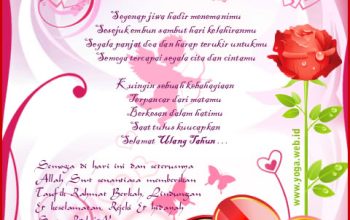 Segenap jiwa hadir menemanimu
Sekejap embun sambut hari kelahiranmu
Segala panjat doa dan harap terukir untukmu
Semoga tercapai segala cita dan cintamu
Kuingin sebuah kebahagiaan
Terpancar dari matamu
Berkesan dalam hatimu
Saat tulus kuucapkan
Selamat Ulang Tahun . . .
Semoga di hari ini dan seterusnya
Allah Swt senantiasa memberikan
Taufik Rahmat Berkah, Lindungan
& keselamatan, Rejeki & hidayah
www.yoga.web.id